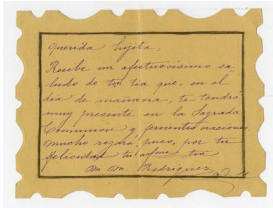 Querida Lujita.
Recibe un afectuosisimo sa
ludo de tu tia que, en el
dia de mañana, te tendrá
muy presente en la Sagrada
Comunion y fervientes oraciones
mucho rezaré, pues, por tu
felicidad tu afme tia
Rodriguez